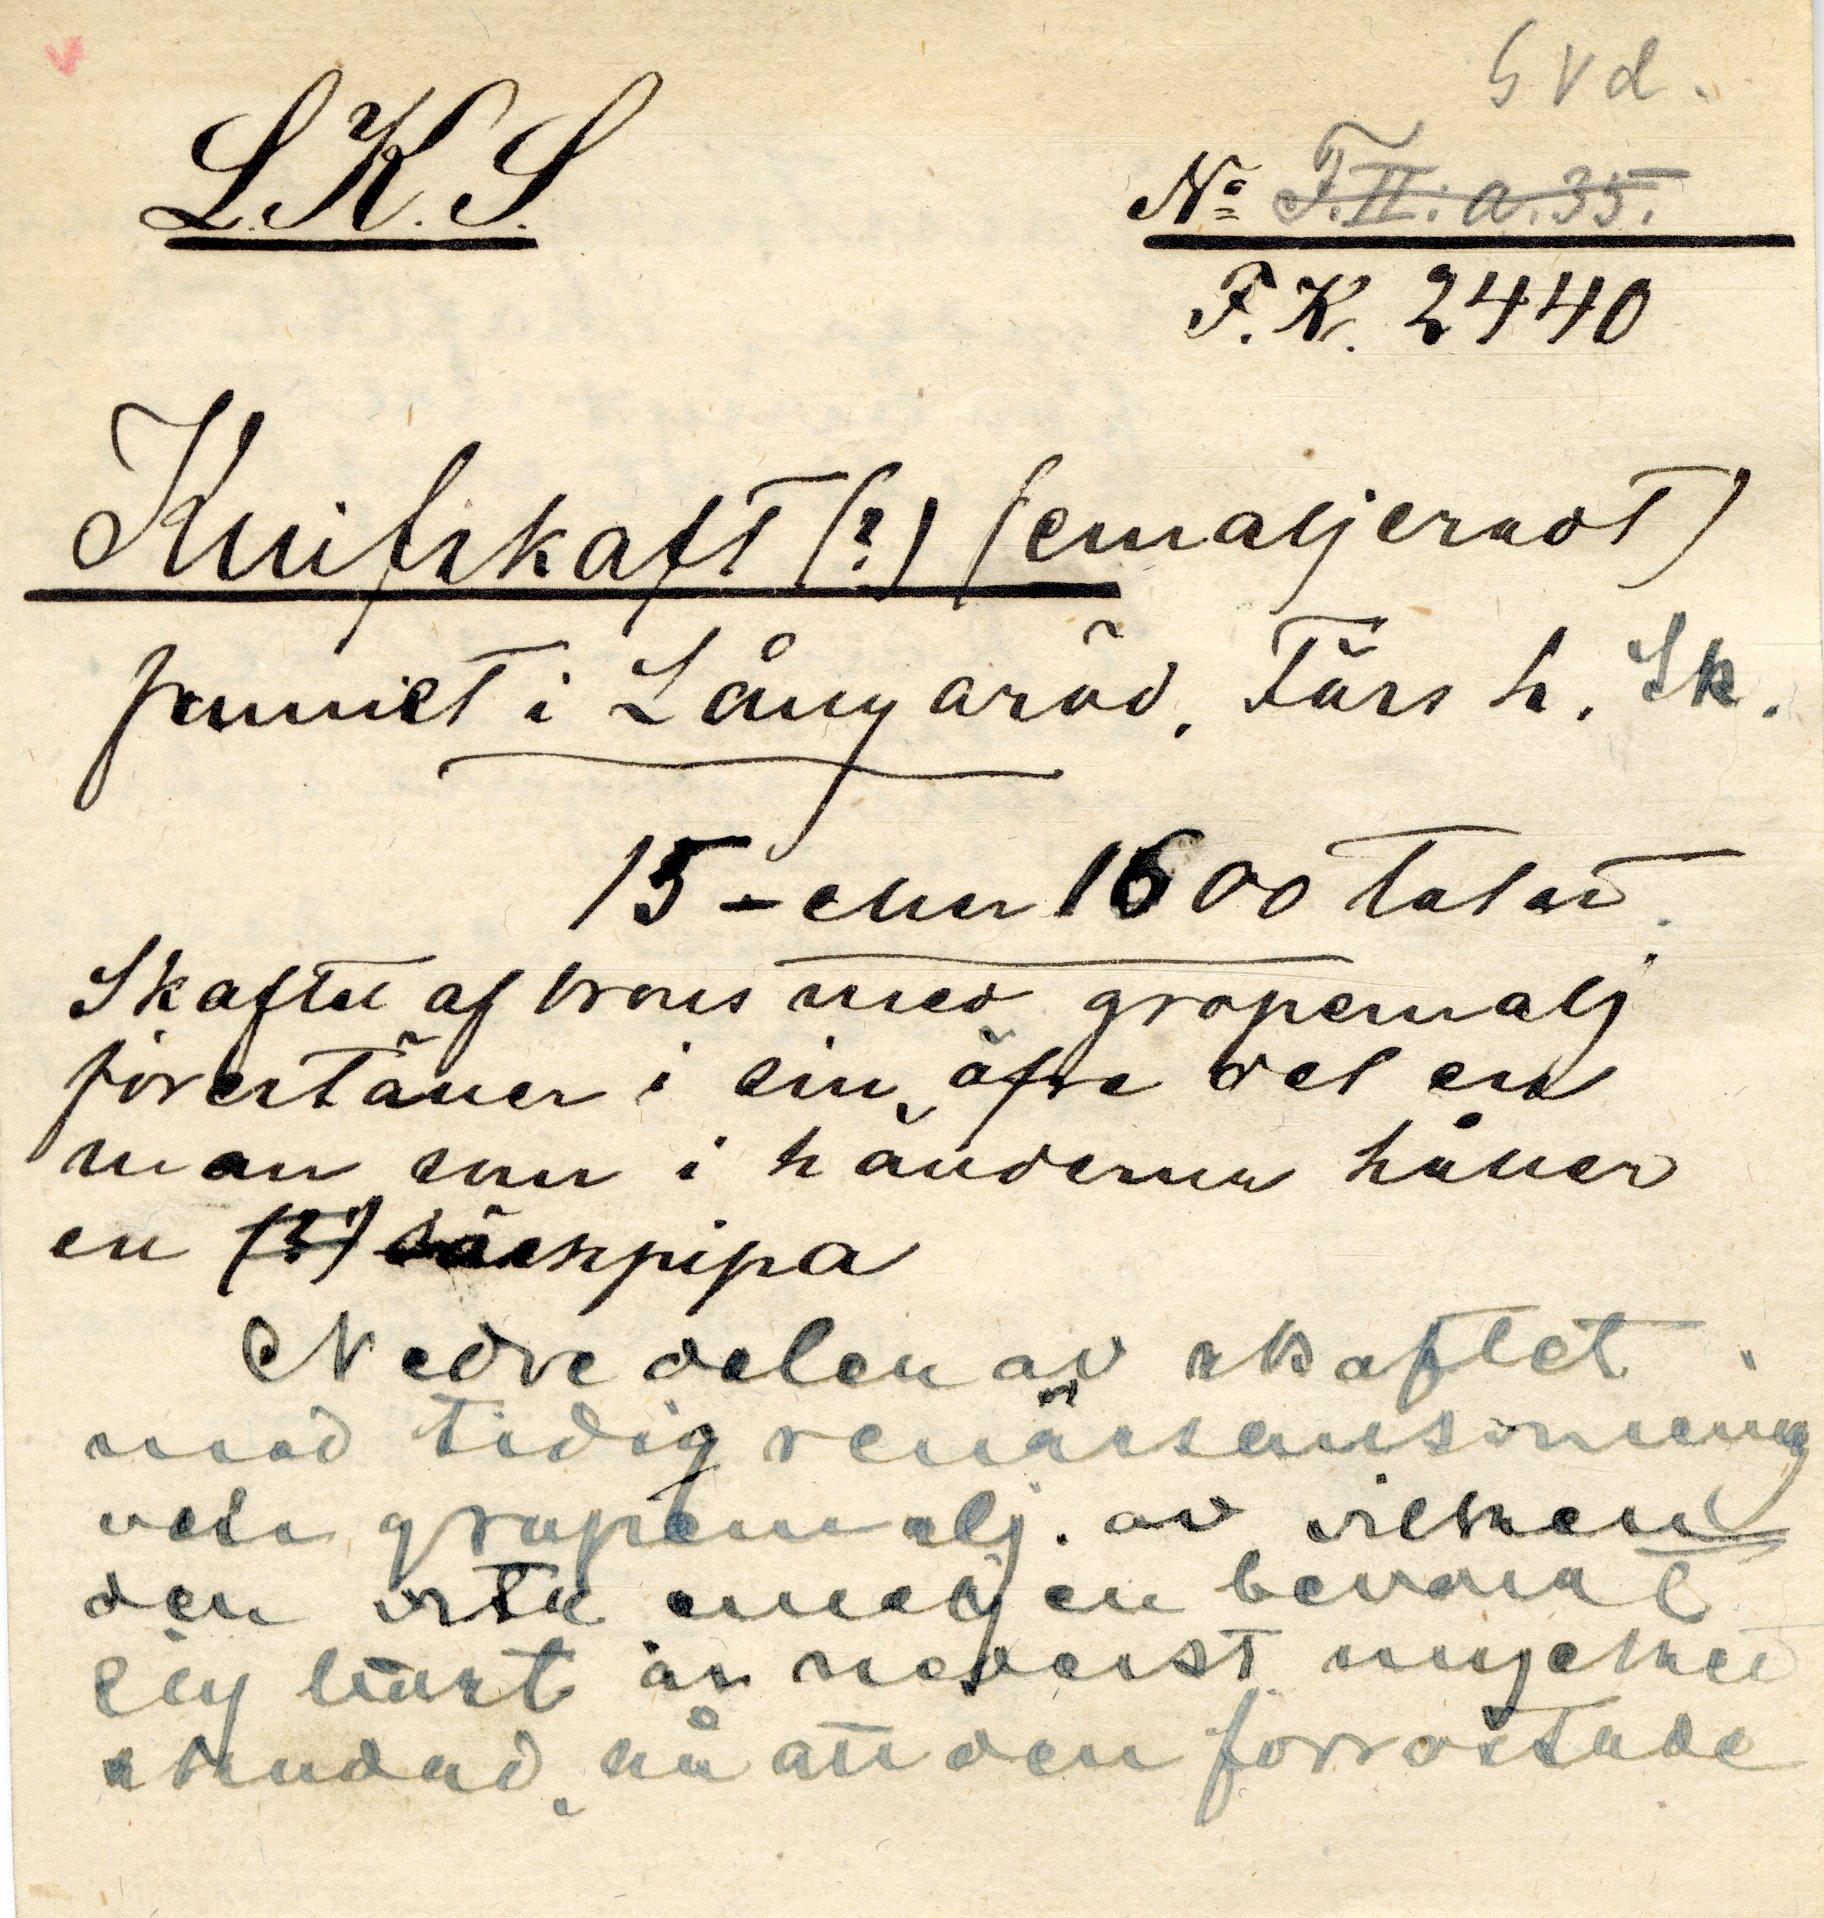 G V d.
L.K.S. No F.II.a.35.
F.K. 2440
Knifskaft (?) (emaljeradt)
funnet i Långaröd. Färs h. Sk.
15- eller 1600 talet.
Skaftet af brons med gropemalj
föreställer i sin öfre del en
man som i händerna håller
en (?) säckpipa
Nedre delen av skaftet
med tidig renässansornering
gropemalj. av vilken
den vita emaljen bevarat
sig bäst är nederst mycket
skadad, så att den förrostade